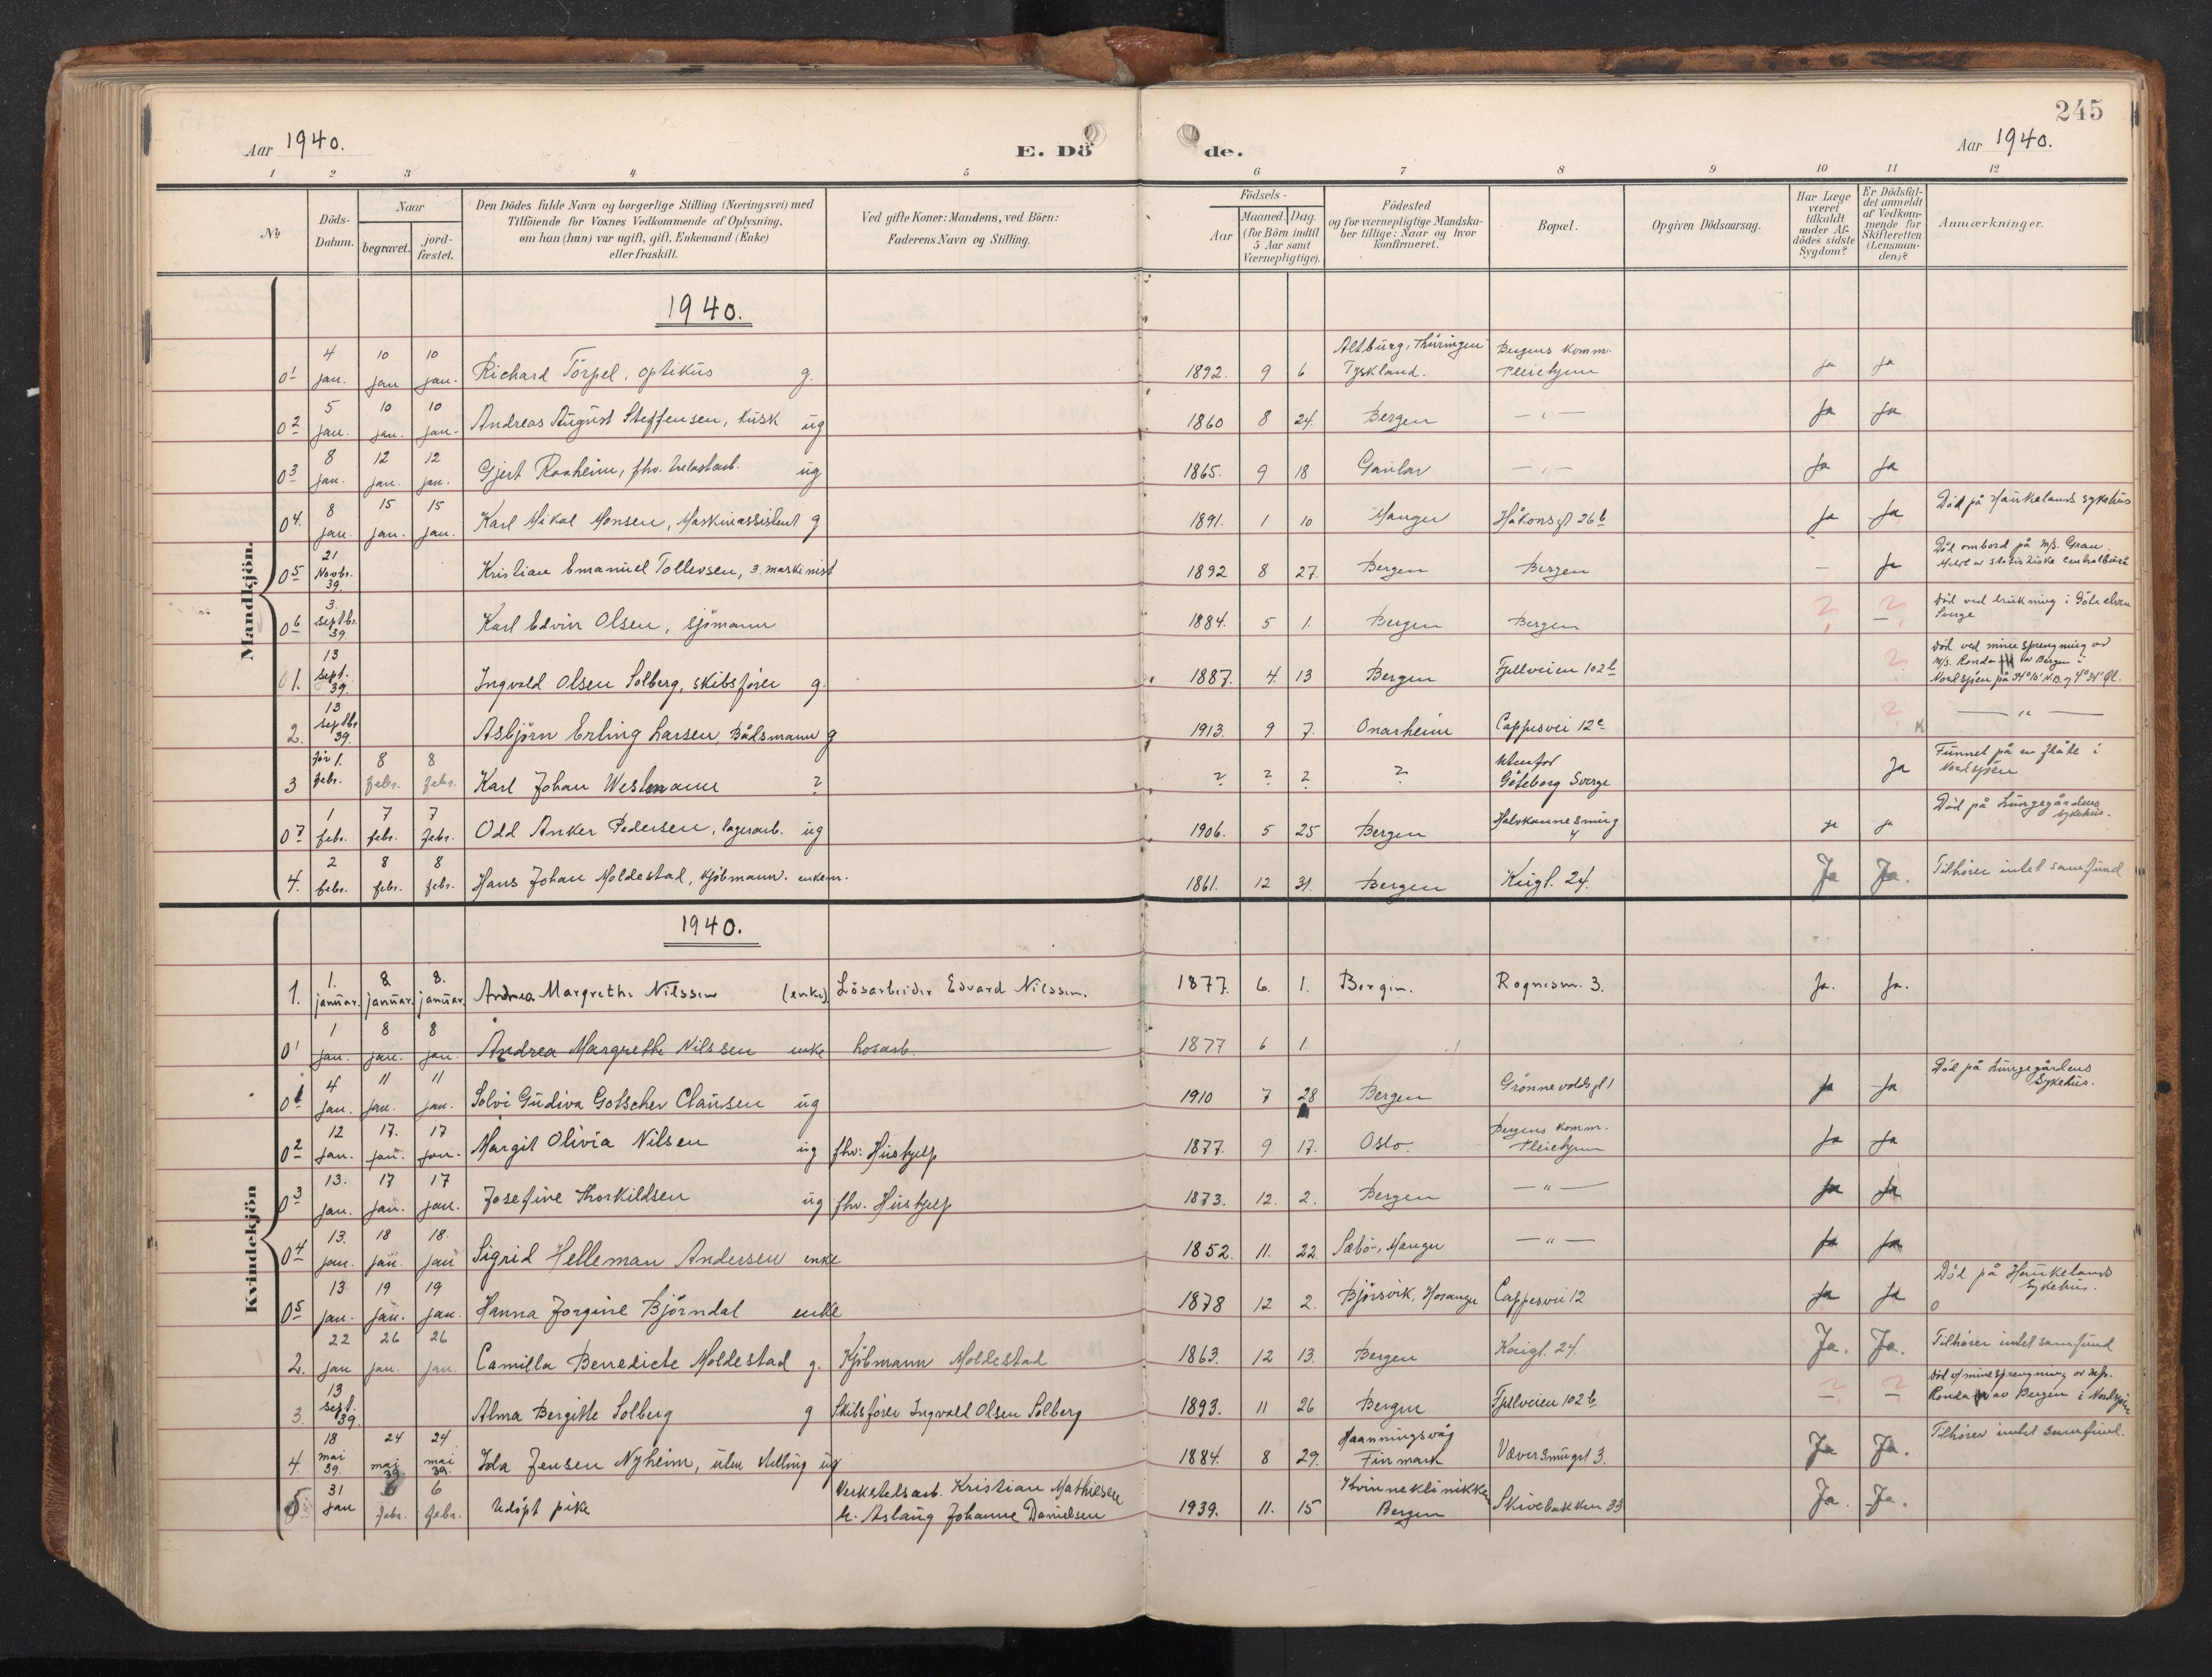 245
Aar 1940. E. Dö de. Aar 1940.
1 2 3 4 5 6 7 8 9 10 11 12
No
Döds-
Datum.
Naar
begravet.
jord-
fæstet.
Den Dödes fulde Navn og borgerlige Stilling (Næringsvei) med
Tilföiende for Voxnes Vedkommende af Oplysning,
om han (hun) var ugift, gift, Enkemand (Enke)
eller fraskilt.
Ved gifte Koner: Mandens, ved Börn:
Faderens Navn og Stilling.
Födsels-
Aar
Maaned. Dag.
(for Börn indtil
5 Aar samt
Værnepligtige).
Födested
og for værnepligtige Mandska-
ber tillige: Naar og hvor
konfirmeret.
Bopæl.
Opgiven Dödsaarsag.
Har Læge
været
tilkaldt
under Af-
dödes sidste
Sygdom?
Er Dödsfal-
det anmeldt
af Vedkom-
mende for
Skifteretten
(Lensman-
den)?
Anmærkninger.
Mandkjön.
1940.
01 4 jan. 10 jan 10 jan. Richard Törpel, optikus g. 1892. 9 6 Altburg, Thüringen Tyskland. Bergens komm. Pleiehjem Ja Ja
02 5 jan. 10 jan. 10 jan. Andreas August Steffensen, kusk ug 1860 8 24. Bergen — " — Ja Ja
03 8 jan. 12 jan. 12 jan. Gjert Raaheim, fhv. ug 1865. 9 18 Gaular — " — Ja Ja
04. 8 jan. 15 jan. 15 jan. Karl Mikal Monsen, Maskinassistent g 1891. 1 10 Manger Håkonsgt 26b Ja Ja Död på Haukelands sykehus
05 21 Novbr. 39. Kristian Emanuel Tollevsen, 3. maskinist 1892 8 27. Bergen Bergen — Ja Död ombord på M/S. Gran. Meldt av statistiske centralbureå
06 3. septbr. 39. Karl Edvin Olsen, sjömann 1884. 5 1. Bergen Bergen ? ? Död ved drukning i Göta elven Sverge
01. 13 sept. 39. Ingvald Olsen Solberg, skibsförer g. 1887. 4. 13 Bergen Fjellveien 102b ? död ved minesprengning av M/S. Ronda av Bergen i Nordsjöen på 54°10' N.B. og 4°34' Öl.
2. 13 septbr 39. Asbjörn Erling Larsen, Båtsmann g 1913. 9 7. Onarheim Cappesvei 12c ? — " —
3 för 1. febr. 8 febr. 8 febr. Karl Johan Westmann ? ? ? ? ? utenfor Göteborg Sverge Ja Funnet på en flåte i Nordsjöen
07 1 febr. 7 febr. 7 febr. Odd Anker Pedersen, lagerarb. ug 1906. 5 25 Bergen Halvkannesmug 4 Ja Ja Död på Lungegårdens sykehus.
4. 2 febr. 8 febr. 8 febr. Hans Johan Moldestad, kjöbmann. enkem. 1861. 12 31. Bergen Kaigt. 24. Ja Ja. Tilhörer intet samfund
Kvindekjön
1940.
1. 1. januar. 8. januar. 8. januar. Andrea Margrethe Nilssen (enke) Lösarbeider Edvard Nilssen. 1877. 6. 1. Bergen. Rognesm. 3. Ja. Ja.
01 1 jan. 8 jan. 8 jan. Andrea Margrethe Nilssen enke Losarb. 1877 6 1.
01 4 jan. 11 jan. 11 jan. Solvi Gudiva Gotscher Clausen ug 1910 7 28 Bergen Grönnevoldsgt 1 Ja Ja Död på Lungegårdens Sykehus.
02 12 jan. 17. jan. 17 jan. Margit Olivia Nilsen ug fhv: Hushjelp 1877. 9 17. Oslo. Bergens komm. Pleiehjem Ja Ja
03 13. jan. 17 jan. 17 jan. Josefine Thorkildsen ug fhv. Hushjelp 1873. 12. 2. Bergen — " — Ja Ja
04 13. jan. 18 jan. 18. jan Sigrid Helleman Andersen enke 1852. 11. 22. Sæbö, Manger — " — Ja Ja
05 13 jan. 19 jan. 19 jan. Hanna Jorgine Björndal enke 1878 12 2. Björsvik, Hosanger Cappesvei 12 Ja Ja Död på Haukelands Sykehus. 0
2. 22 jan 26 jan. 26 jan. Camilla Benedicte Moldestad g. Kjöbmann Moldestad 1863. 12 13. Bergen Kaigt. 24. Ja. Ja. Tilhörer intet samfund
3. 13 sept. 39 Alma Bergitte Solberg g Skibsförer Ingvald Olsen Solberg 1893. 11 26 Bergen Fjellveien 102b ? ? död v/ minesprengning av M/S. Ronda av Bergen i Nordsjöen
4. 18 mai 39. 24 mai 39 24 mai 39. Ida Jensen Nyheim, uten stilling ug 1884. 8 29. Haanningsvåg Finmark Væversmuget 3. Ja Ja. Tilhörer intet samfund.
5 31 jan 6 febr. 6 febr. Udöpt pike Verkstedsarb. Kristian Mathiesen h. Aslaug Johanne Danielsen 1939. 11. 15 Kvinneklinikken Bergen Skivebakken 33 Ja. Ja.